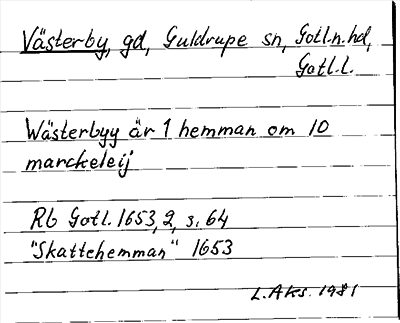 Västerby, gd, Guldrupe sn, Gotl.n.hd,
Gotl.l.
Wästerbyy är 1 hemman om 10
marckeleij
Rb Gotl. 1653, 2, s. 64
"Skattehemman" 1653
L. Aks. 1981